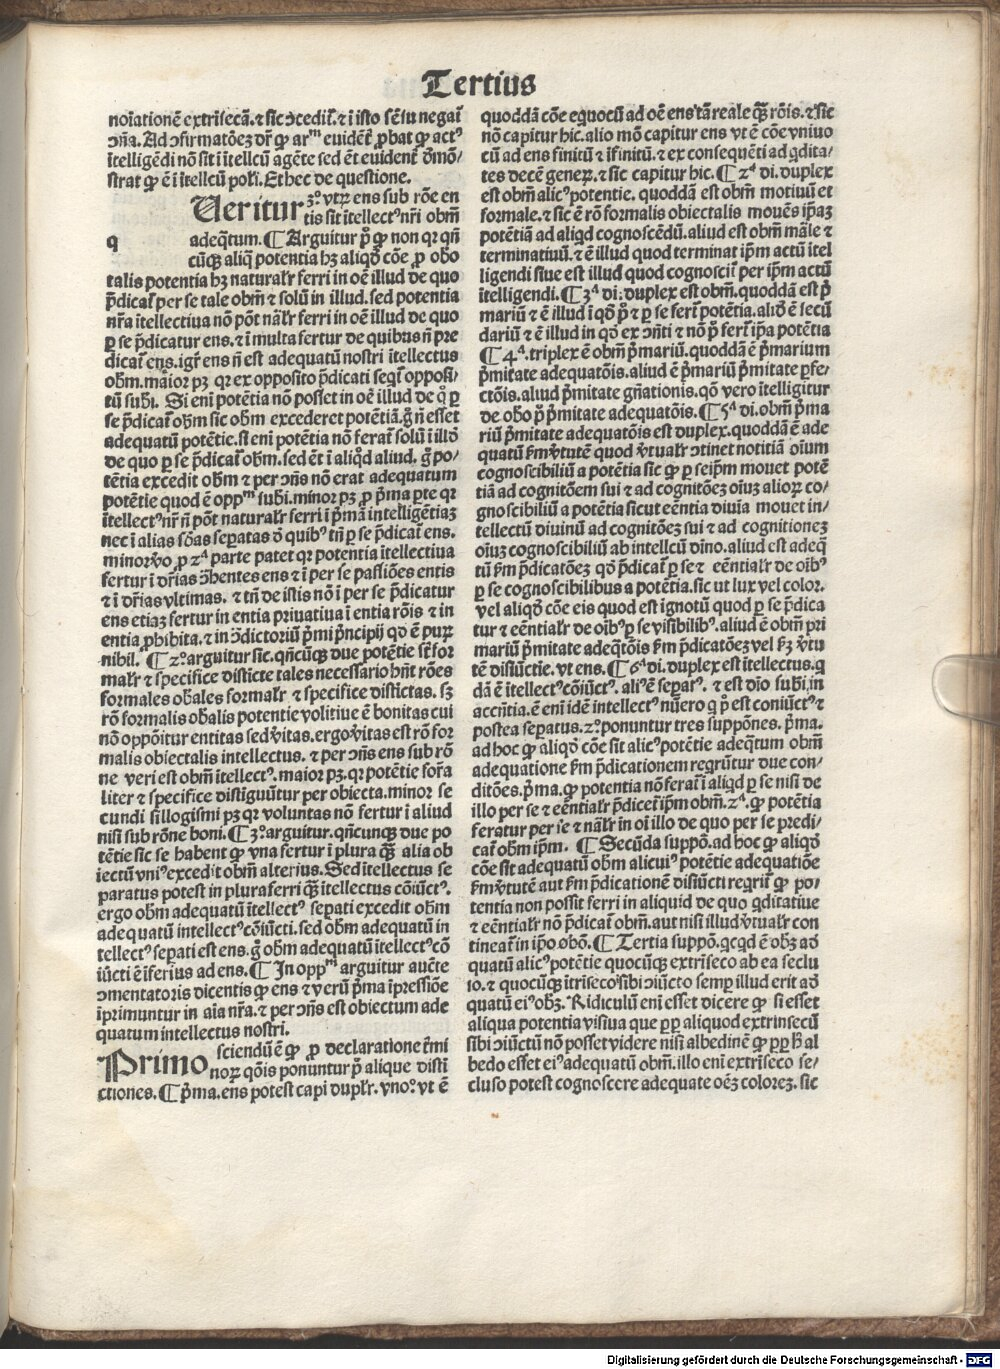 Tertius
noīationē extrīsecā. ⁊ sic ɔcedit̄. ⁊ ī isto sēsu negat̄
ɔn̄a. Ad ɔfirmatōeꝫ dr̄ ꝙ arᵐ euidēt̄ ꝓbat ꝙ actꝰ
ītelligēdi nō sit ī ītellcū agēte sed ēt euidēt̄ dēmō/
strat ꝙ ē ī ītellcū posi. Et hec de questione.
q Ueritur 3ᵒ. vtꝝ ens sub rōe en
tis sit ītellectꝰ nr̄i obm̄
adeq̄tum. ¶ Arguitur p̄ ꝙ non qꝛ qn̄
cūqꝫ aliq̄ potentia hꝫ aliqď cōe ꝓ obō
talis potentia hꝫ naturalr̄ ferri in oē illud de quo
p̄dicat̄ per se tale obm̄ ⁊ solū in illud. sed potentia
nr̄a ītellectiua nō pōt nālr̄ ferri in oē illud de quo
ꝑ se p̄dicatur ens. ⁊ ī multa fertur de quibus n̄ pre
dicat̄ ens. igr̄ ens n̄ est adequatū nostri ītellectus
obm̄. maior pꝫ qꝛ ex opposito p̄dicati seqt̄ opposi/
tū subi. Si eni potētia nō posset in oē illud de q̊ ꝑ
se p̄dicat̄ obm̄ sic obm̄ excederet potētiā. g̊ n̄ esset
adequatū potētie. si eni potētia nō ferat̄ solū ī illď
de quo ꝑ se p̄dicat̄ obm̄. sed ēt ī aliqď aliud. g̊ po/
tētia excedit obm̄ ⁊ per ɔn̄s nō erat adequatum
potētie quod ē oppᵐ subi. minor pꝫ ꝓ p̄ma ꝑte qꝛ
ītellectꝰ nr̄ n̄ pōt naturalr̄ ferri ī p̄mā intelligētiaꝫ
nec ī alias sb̄as sepatas ď quibꝰ tn̄ ꝑ se p̄dicat̄ ens.
minor v̊o ꝓ 2ᵃ parte patet qꝛ potentia ītellectiua
fertur ī dr̄ias ɔ̄hentes ens ⁊ ī per se passiōes entis
⁊ ī dr̄ias vltimas. ⁊ tn̄ de istis nō ī per se p̄dicatur
ens etiaꝫ fertur in entia priuatiua ī entia rōis ⁊ in
entia ꝓhibita. ⁊ in ɔ̄dictoriū p̄mi p̄ncipij qď ē purꝝ
nihil. ¶ 2ᵒ arguitur sic. qn̄cūqꝫ due potētie st̄ for
malr̄ ⁊ specifice disticte tales necessario hn̄t rōes
formales obales formalr̄ ⁊ specifice distictas. sꝫ
rō formalis obalis potentie volitiue ē bonitas cui
nō oppōitur entitas sed v̄itas. ergo v̄itas est rō for
malis obiectalis intellectus. ⁊ per ɔn̄s ens sub rō
ne veri est obm̄ ītellectꝰ. maior pꝫ. qꝛ potētie for̄a
liter ⁊ specifice distiguūtur per obiecta. minor se
cundi sillogismi pꝫ qꝛ voluntas nō fertur ī aliud
nisi sub rōne boni. ¶ 3ᵒ arguitur. qn̄cunqꝫ due po
tētie sic se habent ꝙ vna fertur ī plura qꝫ̄ alia ob
iectū vniꝰ excedit obm̄ alterius. Sed ītellectus se
paratus potest in plura ferri qꝫ̄ ītellectus cōiūctꝰ.
ergo obm̄ adequatū ītellectꝰ sepati excedit obm̄
adequatū intellectꝰ cōiūcti. sed obm̄ adequatū in
tellectꝰ sepati est ens. g̊ obm̄ adequatū ītellectꝰ cō
iūcti ē īferius ad ens. ¶ In oppᵐ arguitur aucte
ɔmentatoris dicentis ꝙ ens ⁊ verū p̄ma īpressiōe
īprimuntur in aīa nr̄a. ⁊ per ɔn̄s est obiectum ade
quatum intellectus nostri.
Primo sciendū ē ꝙ ꝓ declaratione t̄mi
noꝝ qōis ponuntur p̄ alique disti
ctiones. ¶ p̄ma. ens potest capi duplr̄. vnoº. vt ē
quoddā cōe equocū ad oē ens tā reale qꝫ̄ rōis. ⁊ sic
nō capitur hic. alio mō capitur ens vt ē cōe vniuo
cū ad ens finitū ⁊ īfinitū. ⁊ ex consequēti ad qdita/
tes decē geneꝝ. ⁊ sic capitur hic. ¶ 2ᵃ di. duplex
est obm̄ alicꝰ potentie. quoddā est obm̄ motiuū et
formale. ⁊ sic ē rō formalis obiectalis mouēs ip̄aꝫ
potētiā ad aliqd cognoscēdū. aliud est obm̄ māle ⁊
terminatiuū. ⁊ ē illud quod terminat ip̄m actū ītel
ligendi siue est illud quod cognoscit̄ per ip̄m actū
ītelligendi. ¶ 3ᵃ di. duplex est obm̄. quoddā est p̄
mariū ⁊ ē illud ī qď p̄ ⁊ ꝑ se fert̄ potētia. aliď ē secū
dariū ⁊ ē illud in qď ex ɔn̄ti ⁊ nō p̄ fert̄ ip̄a potētia
¶ 4ᵃ. triplex ē obm̄ p̄mariū. quoddā ē p̄marium
p̄mitate adequatōis. aliud ē p̄mariū p̄mitate ꝑfe/
ctōis. aliud p̄mitate gn̄ationis. qō vero ītelligitur
de obō p̄ p̄mitate adequatōis. ¶ 5ᵃ di. obm̄ p̄ma
riū p̄mitate adequatōis est duplex. quoddā ē ade
quatū fm̄ v̄tutē quod v̄tualr̄ ɔtinet notitiā oīum
cognoscibiliū a potētia sic ꝙ ꝑ seip̄m mouet potē
tiā ad cognitōem sui ⁊ ad cognitōeꝫ oīuꝫ alioꝝ co/
gnoscibiliū a potētia sicut eēntia diuīa mouet in/
tellectū diuinū ad cognitōeꝫ sui ⁊ ad cognitioneꝫ
oīuꝫ cognoscibiliū ab intellcū dīno. aliud est adeq̄
tū fm̄ p̄dicatōeꝫ qď p̄dicat̄ ꝑ se ⁊ eēntialr̄ de oībꝰ
ꝑ se cognoscibilibus a potētia. sic ut lux vel color.
vel aliqď cōe eis quod est ignotū quod ꝑ se p̄dica
tur ⁊ eēntialr̄ de oībꝰ ꝑ se visibilibꝰ. aliud ē obm̄ pri
mariū p̄mitate adeq̄tōis fm̄ p̄dicatōeꝫ vel fꝫ v̄tu
tē disiūctie. vt ens. ¶ 6ᵃ di. duplex est ītellectus. q
dā ē ītellectꝰ cōiūctꝰ. aliꝰ ē sepatꝰ. ⁊ est dīo subi, in
accn̄tia. ē eni idē intellectꝰ nūero q p̄ est coniūctꝰ ⁊
postea sepatus. 2ᵒ ponuntur tres suppōnes. p̄ma.
ad hoc ꝙ aliqď cōe sit alicꝰ potētie adeq̄tum obm̄
adequatione fm̄ p̄dicationem reqrūtur due con/
ditōes. p̄ma. ꝙ potentia nō ferat̄ ī aliqd ꝑ se nisi de
illo per se ⁊ eēntialr̄ p̄dicet̄ ip̄m obm̄. 2ᵃ. ꝙ potētia
feratur per se ⁊ nālr̄ in oī illo de quo per se predi/
cat̄ obm̄ ip̄m. ¶ Secūda suppō. ad hoc ꝙ aliqď
cōe sit adequatū obm̄ alicuiꝰ potētie adequatiōe
fm̄ v̄tutē aut fm̄ p̄dicationē disiūcti reqrit̄ ꝙ po/
tentia non possit ferri in aliquid de quo qditatiue
⁊ eēntialr̄ nō p̄dicat̄ obm̄. aut nisi illud v̄tualr̄ con
tineat̄ in ip̄o obō. ¶ Tertia suppō. qcqd ē obꝫ ad
quatū alicꝰ potētie quocūqꝫ extrīseco ab ea seclu
so. ⁊ quocūqꝫ ītriseco sibi ɔiūcto semꝑ illud erit ad
quatū eiꝰ obꝫ. Ridiculū eni esset dicere ꝙ si esset
aliqua potentia visiua que ꝓp̄ aliquod extrinsecū
sibi ɔiūctū nō posset videre nisi albedinē ꝙ ꝓp̄ h̄ al
bedo esset eiꝰ adequatū obm̄. illo eni extrīseco se/
cluso potest cognoscere adequate oēꝫ coloreꝫ. sic
Digitalisierung gefördert durch die Deutsche Forschungsgemeinschaft - DFG